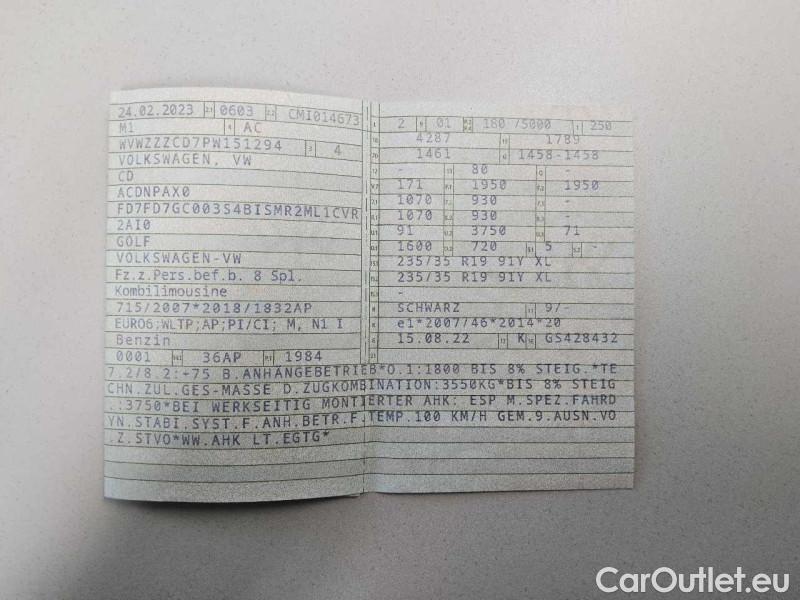 24.02.2023 2.1 0603 2.2 CMI014673
M1 4 AC
WVWZZZCD7PW151294 3 4
VOLKSWAGEN, VW
CD
ACDNPAX0
FD7FD7GC003S4BISMR2ML1CVR
2AI0
GOLF
VOLKSWAGEN-VW
Fz.z.Pers.bef.b. 8 Spl.
Kombilimousine
715/2007*2018/1832AP
EURO6;WLTP;AP;PI/CI; M, N1 I
Benzin
0001 36AP 1984
2 01 180 /5000 250
4287 1789
1461 1458-1458
- 80 -
171 1950 1950
1070 930 -
1070 930 -
91 3750 71
1600 720 5 -
235/35 R19 91Y XL
235/35 R19 91Y XL
-
SCHWARZ 9/-
e1*2007/46*2014*20
15.08.22 K GS428432
7.2/8.2:+75 B.ANHÄNGEBETRIEB*O.1:1800 BIS 8% STEIG.*TE
CHN.ZUL.GES-MASSE D.ZUGKOMBINATION:3550KG*BIS 8% STEIG
.:3750*BEI WERKSEITIG MONTIERTER AHK: ESP M.SPEZ.FAHRD
YN.STABI.SYST.F.ANH.BETR.F.TEMP.100 KM/H GEM.9.AUSN.VO
.Z.STVO*WW.AHK LT.EGTG*
CarOutlet.eu